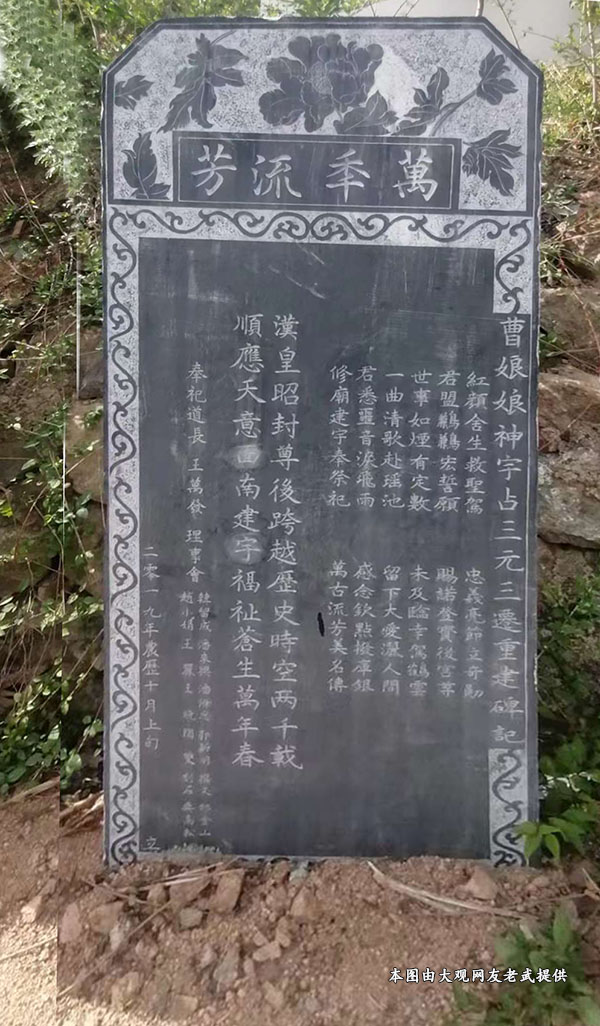 萬秊流芳
曹娘娘神宇占三元三遷重建碑記
紅顏舍生救聖駕 忠義亮節立奇勳
君盟鶼鶼宏誓願 賜諾登寶後宮
世事如煙有定數 未及臨幸駕鶴雲
一曲清歌赴瑶池 留下大愛灑人間
君悉噩音淚飛雨 感念欽點撥庫銀
修廟建宇奉祭祀 萬古流芳美名傳
漢皇昭封尊後跨越歷史時空两千載
順應天意西南建宇福祉蒼生萬年春
奉祀道長 王萬 理事會
二零一九年農歷十月上旬 立
本图由大观网友老武提供